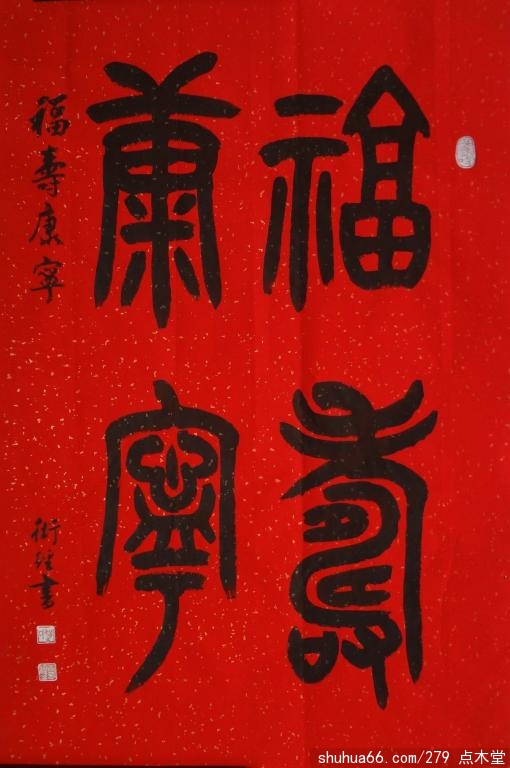 福壽
康寧
福壽康寧
衍經書
shuhua66.com/279 点木堂